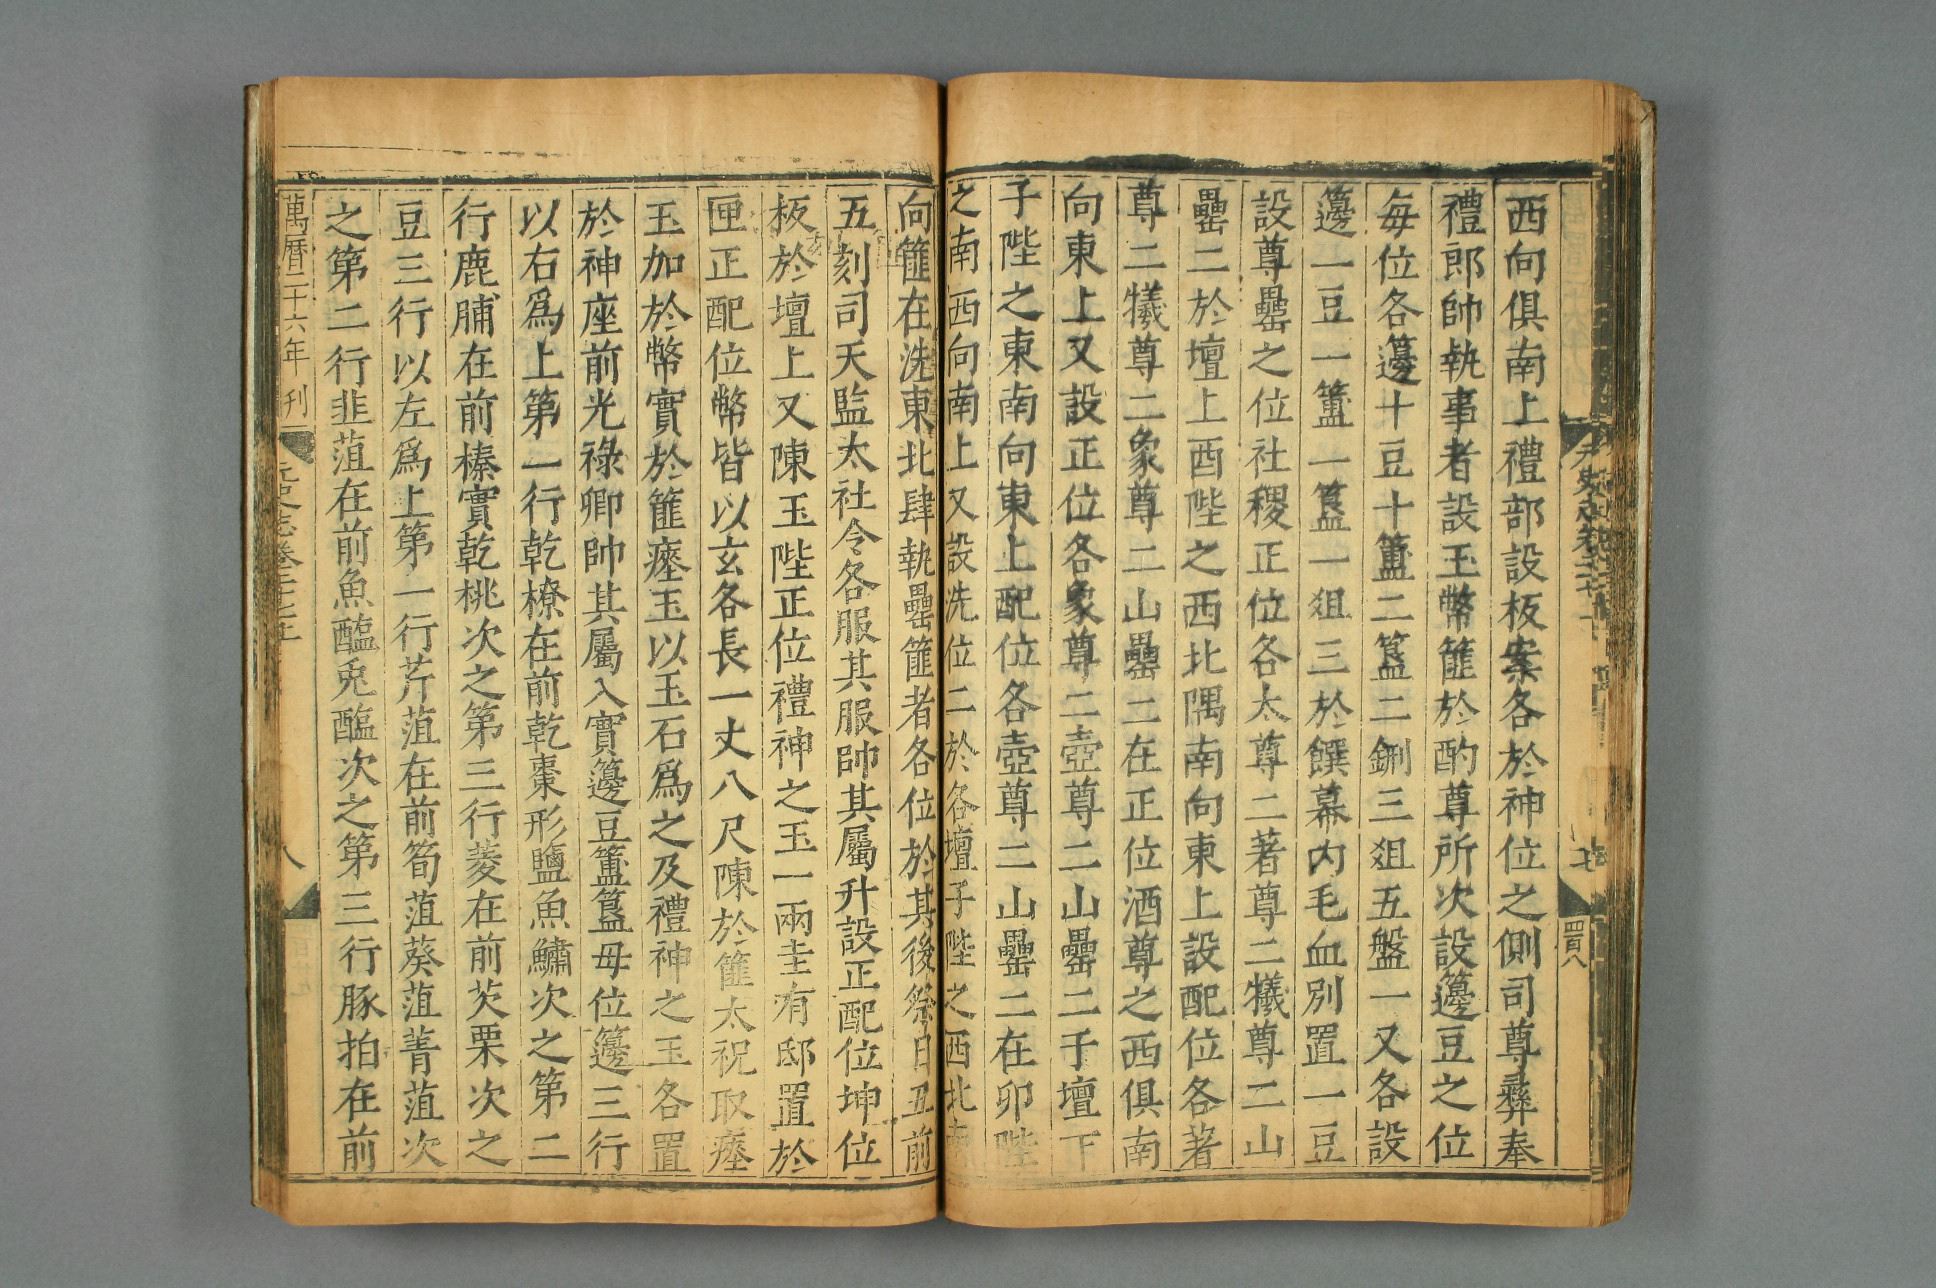 西向俱南上禮部設板案各於神位之側司尊彝奉
禮郎帥執事者設玉幣篚於酌尊所次設籩豆之位
每位各籩十豆十簠二簋二鉶三俎五盤一又各設
籩一豆一簠一簋一俎三於饌幕內毛血別置一豆
設尊罍之位社稷正位各太尊二著尊二犧尊二山
罍二於壇上酉陛之西北隅南向東上設配位各著
尊二犧尊二象尊二山罍二在正位酒尊之西俱南
向東上又設正位各象尊二壺尊二山罍二于壇下
子陛之東南向東上配位各壺尊二山罍二在卯陛
之南西向南上又設洗位二於各壇子陛之西北南
向篚在洗東北肆執罍篚者各位於其後祭日丑前
五刻司天監太社令各服其服帥其屬升設正配位坤位
板於壇上又陳玉陛正位禮神之玉一兩圭有邸置於
匣正配位幣皆以玄各長一丈八尺陳於篚太祝取瘞
玉加於幣實於篚瘞玉以玉石爲之及禮神之玉各置
於神座前光祿卿帥其屬入實籩豆簠簋每位籩三行
以右爲上第一行乾橑在前乾棗形鹽魚鱐次之第二
行鹿脯在前榛實乾桃次之第三行菱在前芡栗次之
豆三行以左爲上第一行芹菹在前筍菹葵菹菁菹次
之第二行韭菹在前魚醢兎醢次之第三行豚拍在前
萬曆二十六年刊
元史志卷二十七上
八
七
四百八